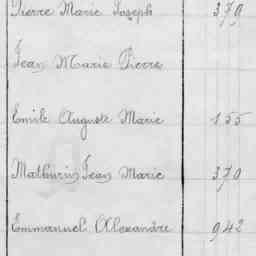 Pierre Marie Joseph 379
Jean Marie Pierre
Emile Auguste Marie 155
Mathurin Jean Marie 370
Emmanuel Alexandre 942